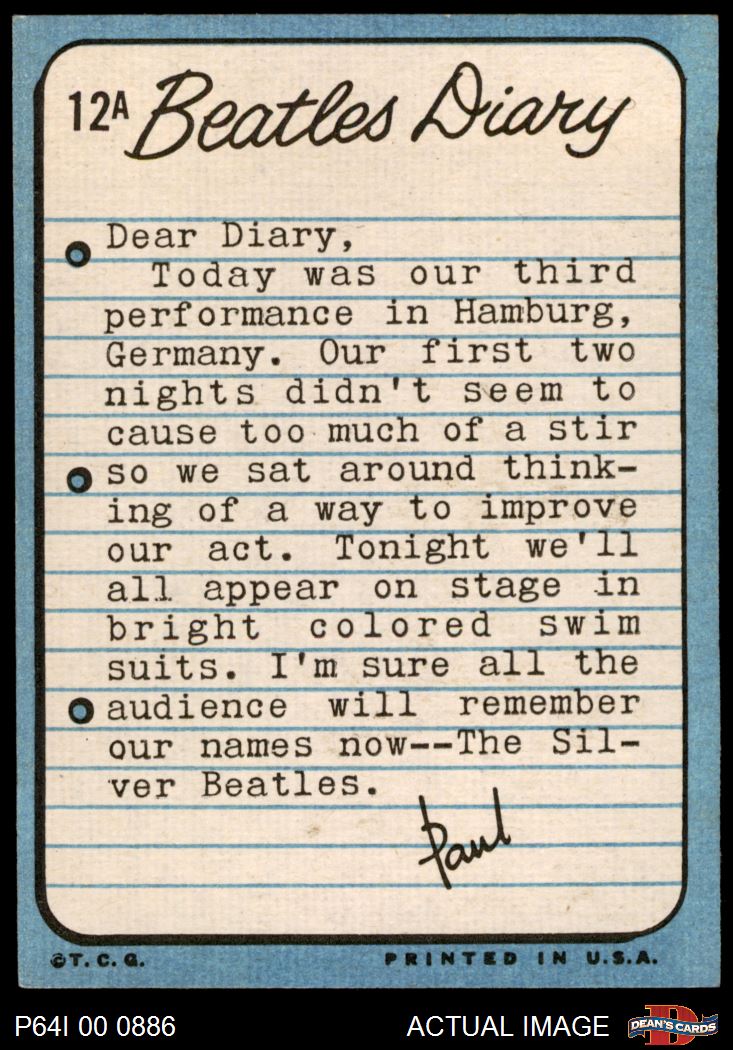 12A Beatles Diary
Dear Diary,
Today was our third
performance in Hamburg,
Germany. Our first two
nights didn't seem to
cause too much of a stir
so we sat around think-
ing of a way to improve
our act. Tonight we'll
all appear on stage in
bright colored swim
suits. I'm sure all the
audience will remember
our names now--The Sil-
ver Beatles.
Paul
©T.C.G. PRINTED IN U.S.A.
P64I 00 0886 ACTUAL IMAGE DEAN'S CARDS